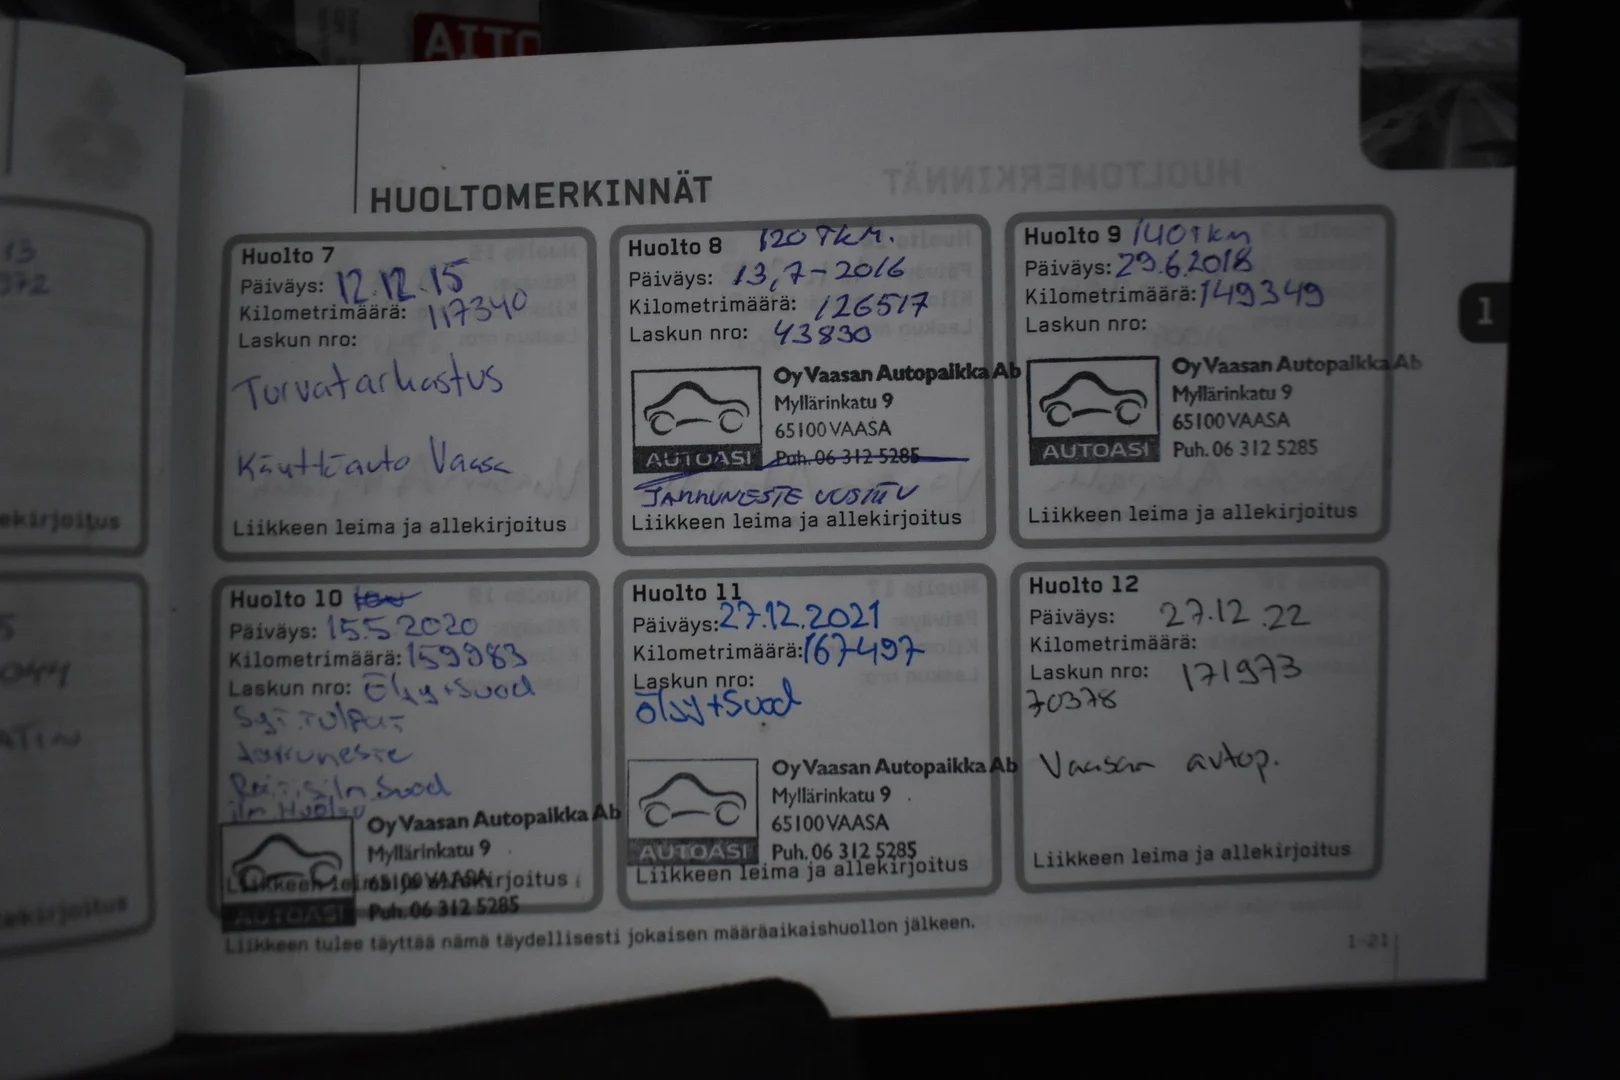 AITO
HUOLTOMERKINNÄT
Huolto 7
Päiväys: 12.12.15
Kilometrimäärä: 117340
Laskun nro:
Turvatarkastus
Käyttöauto Vaasa
Liikkeen leima ja allekirjoitus
Huolto 8 120 TKM.
Päiväys: 13,7-2016
Kilometrimäärä: 126517
Laskun nro: 43830
Oy Vaasan Autopaikka Ab
Myllärinkatu 9
65100 VAASA
AUTOASI Puh. 06 312 5285
JARRUNESTE UUSITTU
Liikkeen leima ja allekirjoitus
Huolto 9 140TKM
Päiväys: 29.6.2018
Kilometrimäärä: 149349
Laskun nro:
Oy Vaasan Autopaikka Ab
Myllärinkatu 9
65100 VAASA
AUTOASI Puh. 06 312 5285
Liikkeen leima ja allekirjoitus
Huolto 10
Päiväys: 15.5.2020
Kilometrimäärä: 159983
Laskun nro: Öljy+Suod
Syt.Tulpat
Jarruneste
Suod
Oy Vaasan Autopaikka Ab
Myllärinkatu 9
65100 VAASA
Liikkeen leima ja allekirjoitus
AUTOASI Puh. 06 312 5285
Huolto 11
Päiväys: 27.12.2021
Kilometrimäärä: 167497
Laskun nro:
Öljy+Suod
Oy Vaasan Autopaikka Ab
Myllärinkatu 9
65100 VAASA
AUTOASI Puh. 06 312 5285
Liikkeen leima ja allekirjoitus
Huolto 12
Päiväys: 27.12.22
Kilometrimäärä:
Laskun nro: 171973
70378
Vaasan autop.
Liikkeen leima ja allekirjoitus
Liikkeen tulee täyttää nämä täydellisesti jokaisen määräaikaishuollon jälkeen.
1-21
1